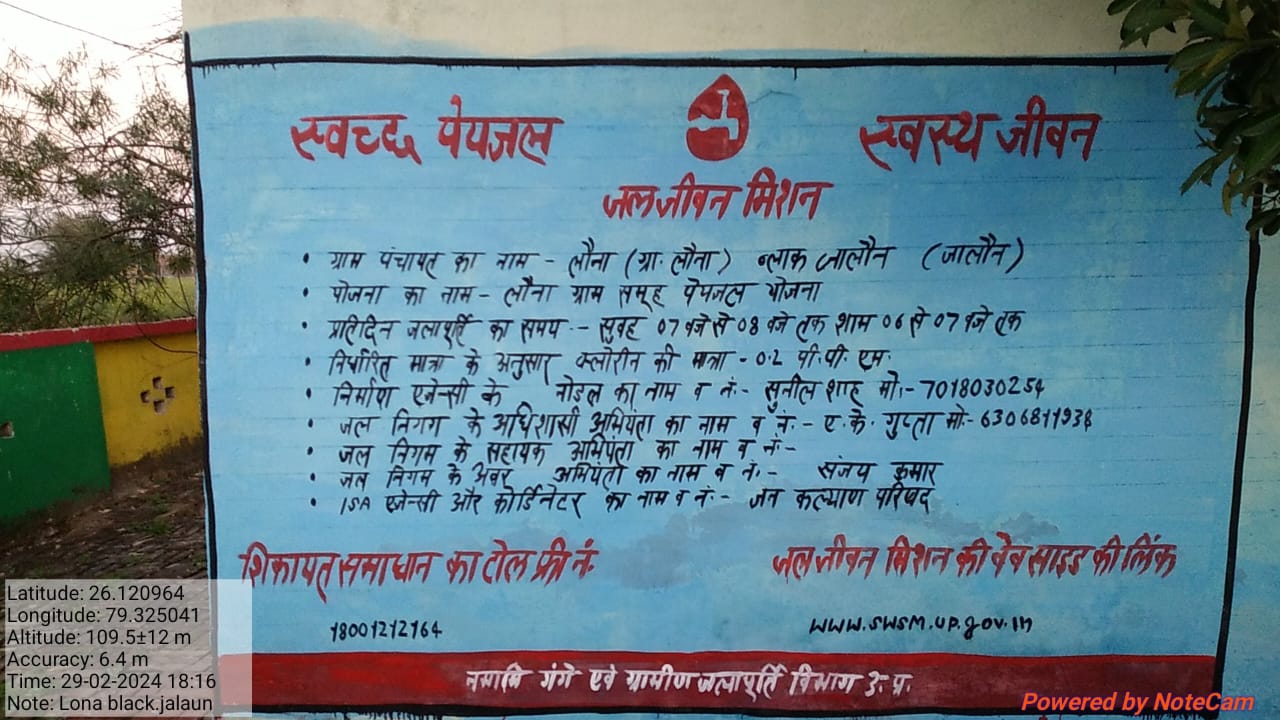 स्वच्छ पेयजल स्वस्थ जीवन
जल जीवन मिशन
• ग्राम पंचायत का नाम - लौना (ग्रा. लौना) ब्लाक जालौन (जालौन)
• योजना का नाम - लौना ग्राम समूह पेयजल योजना
• प्रतिदिन जलापूर्ति का समय - सुबह 07 बजे से 08 बजे तक शाम 06 से 07 बजे तक
• निर्धारित मात्रा के अनुसार क्लोरीन की मात्रा - 0.2 पी.पी. एम.
• निर्माण एजेन्सी के नोडल का नाम व नं:- सुनील शाह मो:- 7018030254
• जल निगम के अधिशासी अभियंता का नाम व नं:- ए.के. गुप्ता मो:- 6306811938
• जल निगम के सहायक अभियंता का नाम व नं:-
• जल निगम के अवर अभियंता का नाम व नं:- संजय कुमार
• ISA एजेन्सी और कोर्डिनेटर का नाम व नं:- जन कल्याण परिषद
शिकायत समाधान का टोल फ्री नं जल जीवन मिशन की वेब साइड की लिंक
18001212164 www.swsm.up.gov.in
नमामि गंगे एवं ग्रामीण जलापूर्ति विभाग उ.प्र.
Latitude: 26.120964
Longitude: 79.325041
Altitude: 109.5±12 m
Accuracy: 6.4 m
Time: 29-02-2024 18:16
Note: Lona black.jalaun
Powered by NoteCam